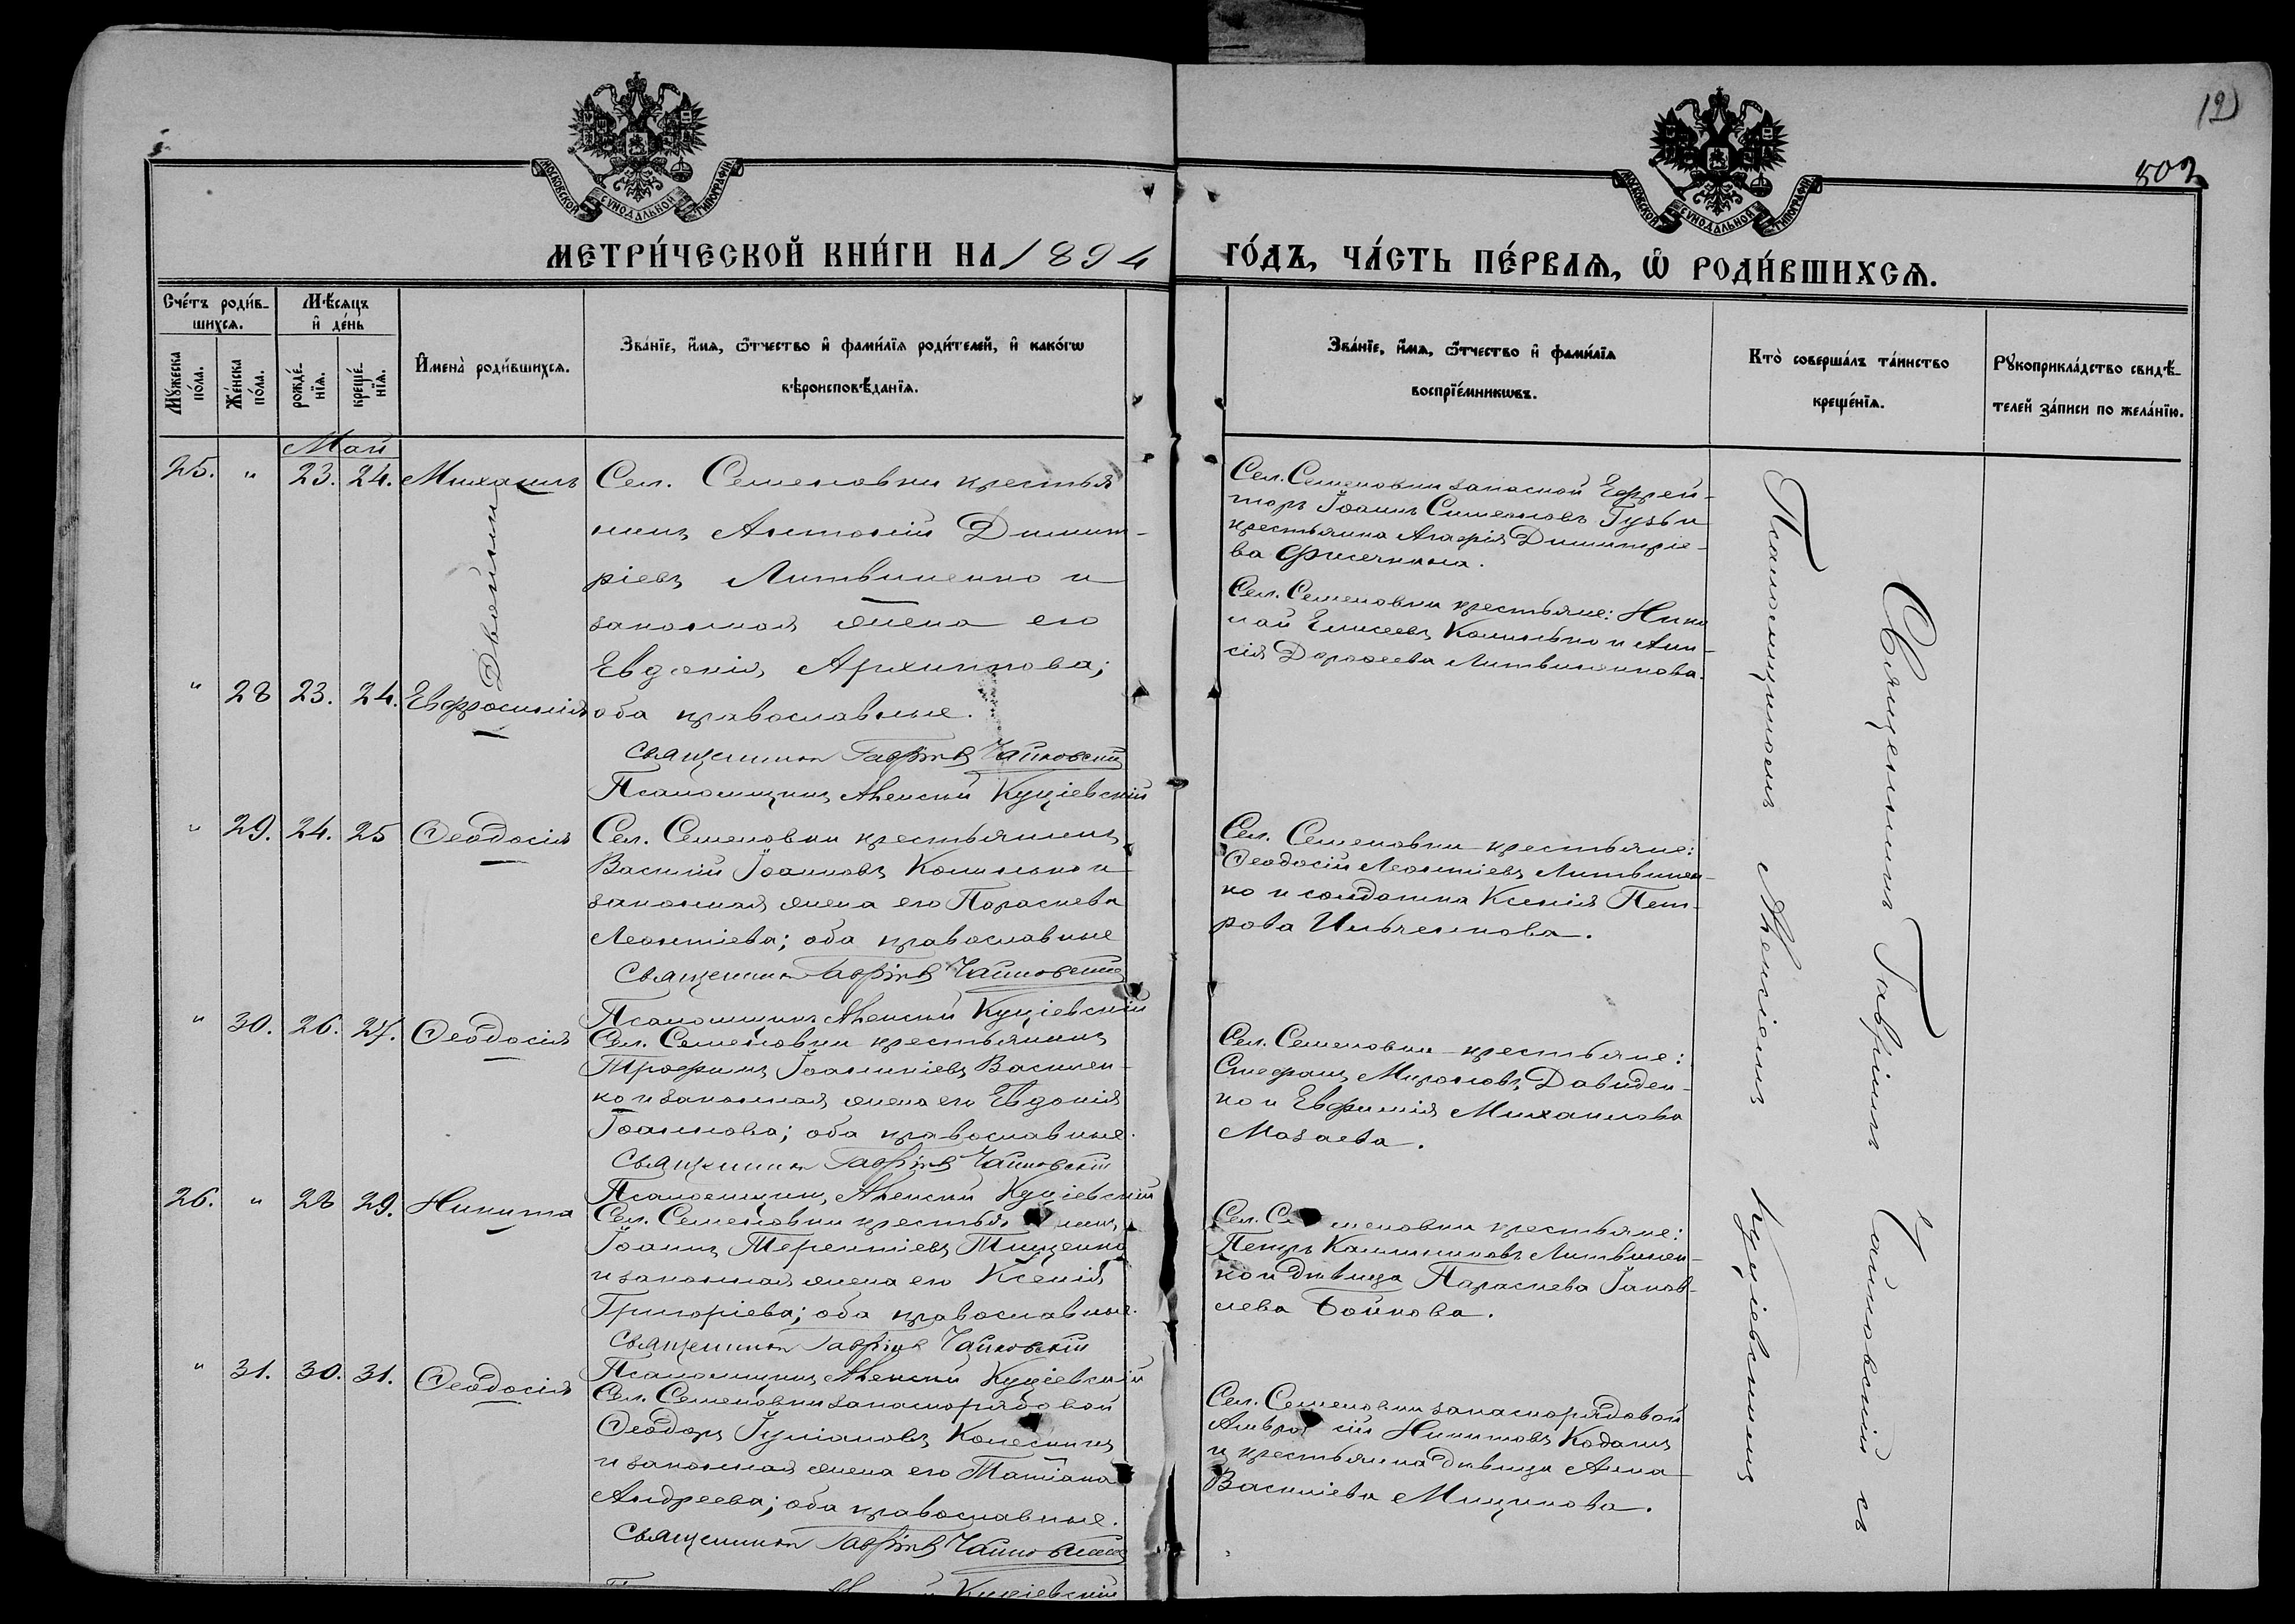 12
502
МОСКОВСКОЙ СУНОДАЛЬНОЙ ТИПОГРАФІИ
МОСКОВСКОЙ СУНОДАЛЬНОЙ ТИПОГРАФІИ
МЕТРИ́ЧЕСКОЙ КНИ́ГИ НА 1894 ГО́ДЪ, ЧА́СТЬ ПЕ́РВАѦ, Ѽ РОДИ́ВШИХСѦ.
Сче́тъ роди́в-
шихсѧ.
Мꙋжеска по́ла.
Же́нска по́ла.
Мѣ́сяцъ
и҆ де́нь
рожде́-
нїѧ.
креще́-
нїѧ.
И҆мена̀ роди́вшихсѧ.
Зва́нїе, и҆́мѧ, ѻ҆́тчество и҆ фами́лїѧ роди́телей, и҆ како́гѡ
вѣроисповѣ́данїѧ.
Зва́нїе, и҆́мѧ, ѻ҆́тчество и҆ фами́лїѧ
воспрїе́мникѡвъ.
Кто̀ соверша́лъ та́инство
креще́нїѧ.
Рꙋкоприкла́дство свидѣ́-
телей за́писи по жела́нїю.
Май
25. " 23. 24. Михаилъ
Двойни
Сел. Семеновки крестья
нинъ Антоній Димит-
ріевъ Литвиненко и
законная жена его
Евдокія Архиппова;
" 28 23. 24. Евфросинія
оба православные.
Священникъ Гавріилъ Чайковскій
Псаломщикъ Алексій Куціевскій
Сел. Семеновки запасной Ефрей-
торъ Іоаннъ Симеоновъ Гузь и
крестьянка Агафія Димитріе-
ва Фисечкина.
Сел. Семеновки крестьяне: Нико
лай Елисеевъ Комилько и Ани-
сія Дорофеева Литвиненкова.
" 29. 24. 25 Ѳеодосія
Сел. Семеновки крестьянинъ
Василій Іоанновъ Комилько и
законная жена его Параскева
Леонтіева; оба православные
Священникъ Гавріилъ Чайковскій
Псаломщикъ Алексій Куціевскій
Сел. Семеновки крестьяне:
Ѳеодосій Леонтіевъ Литвинен-
ко и солдатка Ксенія Пет-
рова Ильченкова.
" 30. 26. 27. Ѳеодосія
Сел. Семеновки крестьянинъ
Трофимъ Іоанникіевъ Василен-
ко и законная жена его Евдокія
Іоаннова; оба православные.
Священникъ Гавріилъ Чайковскій
Псаломщикъ Алексій Куціевскій
Сел. Семеновки крестьяне:
Стефанъ Мироновъ Давиден-
ко и Евфимія Михаилова
Мазаева.
26. " 28 29. Никита
Сел. Семеновки крестья нинъ
Іоаннъ Терентіевъ Тищенко
и законная жена его Ксенія
Григоріева; оба православные.
Священникъ Гавріилъ Чайковскій
Псаломщикъ Алексій Куціевскій
Сел. Се меновки крестьяне:
Петръ Каллиниковъ Литвинен-
ко и дѣвица Параскева Іаков-
лева Бойкова.
" 31. 30. 31. Ѳеодосія
Сел. Семеновки запаснорядовой
Ѳеодоръ Іуліановъ Колесникъ
и законная жена его Татіана
Андреева; оба православные.
Священникъ Гавріилъ Чайковскій
Куціевскій
Сел. Семеновки запаснорядовой
Амвро сій Никитовъ Кодакъ
и крестьянка дѣвица Анна
Василіева Мищикова.
Священникъ Гавріилъ Чайковскій съ
Псаломщикомъ Алексіемъ Куціевскимъ